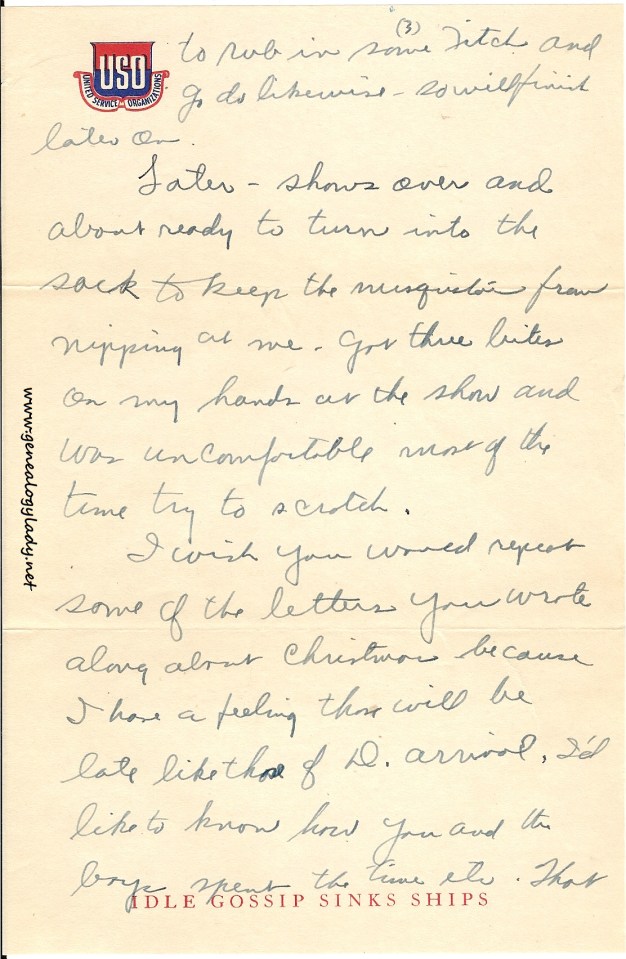 (3)
USO
UNITED SERVICE ORGANIZATIONS
to rub in some Fitch and
go do likewise - so will finish
later on.
Later - shows over and
about ready to turn into the
sack to keep the musquitoes from
nipping at me. Got three bites
on my hands at the show and
was uncomfortable most of the
time try to scratch.
I wish you would repeat
some of the letters you wrote
along about Christmas because
I have a feeling those will be
late like those of D. arrival. I'd
like to know how you and the
boys spent the time etc. That
IDLE GOSSIP SINKS SHIPS
www.genealogylady.net